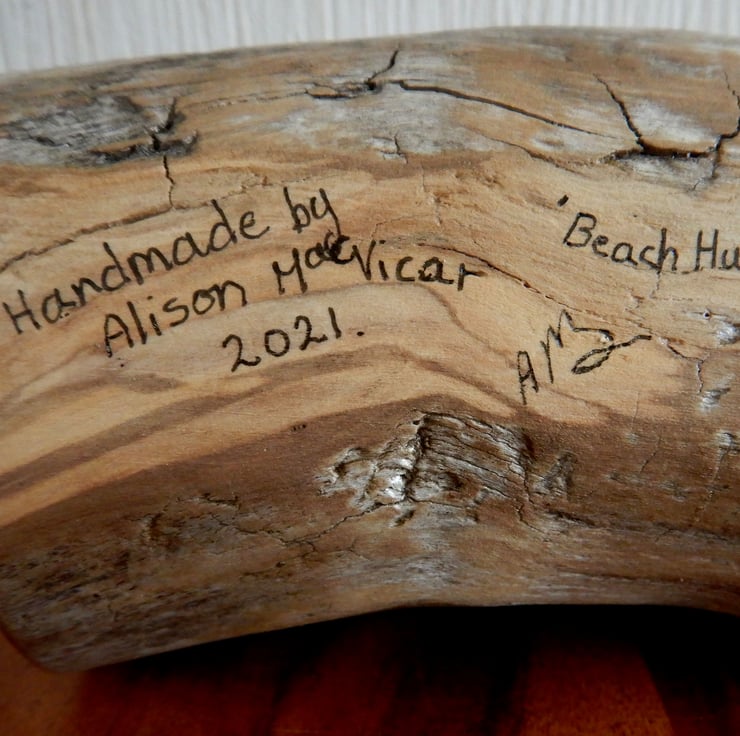 Handmade by
Alison MacVicar
2021.
'Beach Hu
AM